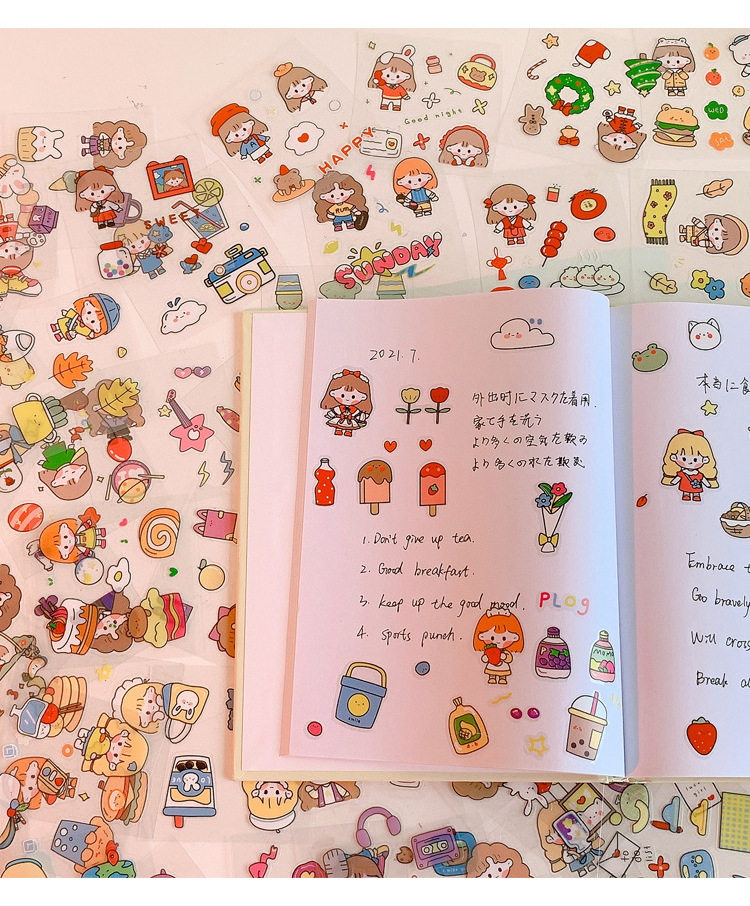 Good night
HAPPY
WED
SAT
SWEET
RUN
SUNDAY
2021.7.
外出时にマスクを着用.
家で手を洗う
より多くの空気を飲る
より多くの水を飲む
1. Don't give up tea.
2. Good breakfast.
3. keep up the good mood.
4. sports punch.
PLOg
MOMO
smile
本当に食
Embrace t
Go bravely
Will cros
Break a
LOVE
to do
list